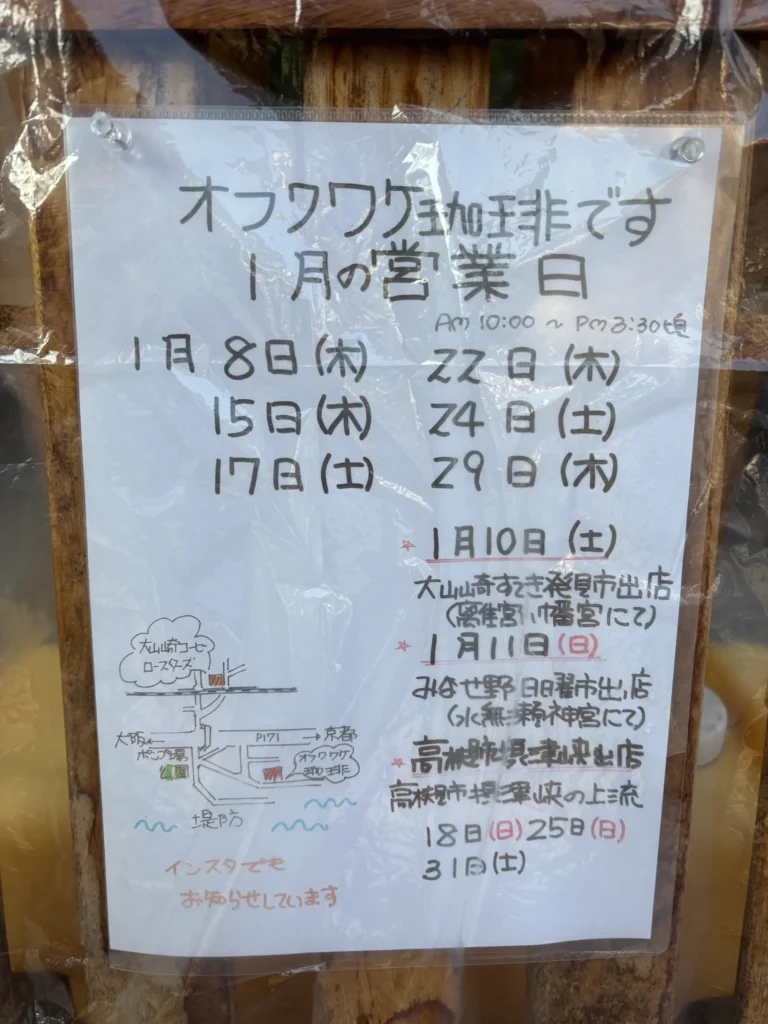 オフクワケ珈琲です
1月の営業日
Am 10:00 ~ Pm 3:30頃
1月 8日(木) 22日(木)
15日(木) 24日(土)
17日(土) 29日(木)
★ 1月10日(土)
大山崎すてき発見市出店
(離宮八幡宮にて)
★ 1月11日(日)
みなせ野日曜市出店
(水無瀬神宮にて)
★ 高槻摂津峡出店
高槻市摂津峡の上流
18日(日) 25日(日)
31日(土)
大山崎コーヒー
ロースターズ
大阪←
R171
→京都
ポンプ場
オフクワケ
珈琲
堤防
インスタでも
お知らせしています